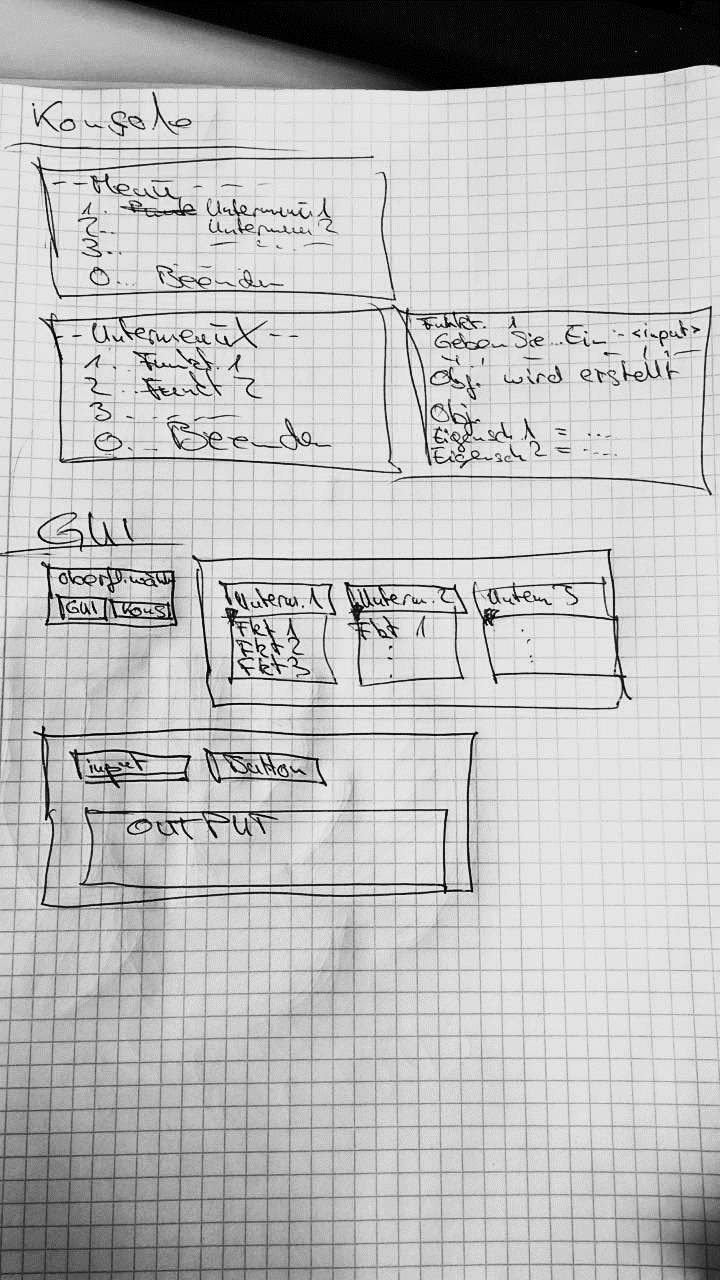 Konsole
--Menü - - -
1. Untermenü 1
2.. Untermenü 2
3.. - - . . -
0... Beenden
--Untermenü X--
1.. Funkt. 1
2.. Funkt 2
3 ...
0... Beenden
Funkt. 1
Geben Sie..Ein:- <input>
Obj. wird erstellt
Obj.
Eigensch.1 = ....
Eigensch2 = .....
GUI
Oberfl.wähl
GUI Kons
Unterm.1 Unterm.2 Unterm 3
Fkt 1 Fkt 1
Fkt 2
Fkt 3
input Button
OUTPUT